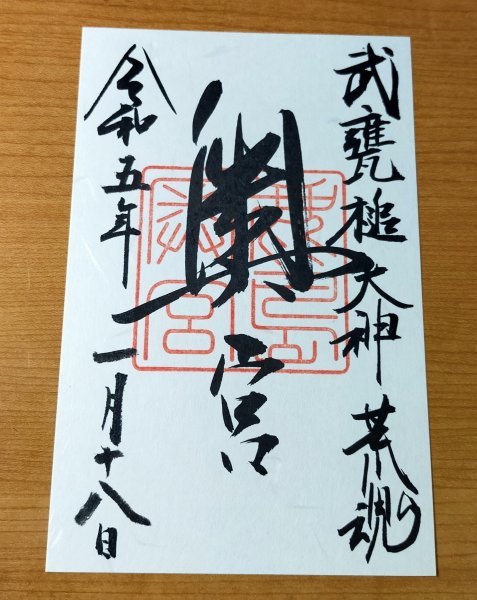 武甕槌大神 荒魂
奥宮
令和五年 一月十八日